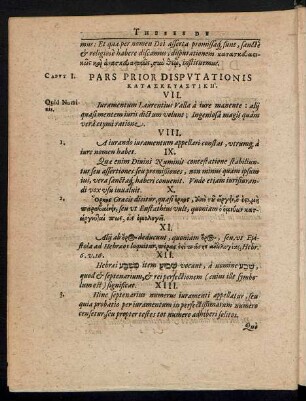 THESES DE
mus: Et qua per nomen Dei asserta promissaq́, sunt, sanctè
& religiosè habere discamus; disputationem κατασκευασι-
κῶς καὶ ἀνασκευασικῶς, σὺν Θεῷ, instituemus.
CAPVT I. PARS PRIOR DISPVTATIONIS
ΚΑΤΑΣΚΕΥΑΣΤΙΚΗ.
VII.
Quid Nomi-
nis. Iuramentum Laurentius Valla à iure manente: alij
quasi mentem iuris dictam volunt; Ingeniosâ magis quàm
verâ etymi ratione.
VIII.
1. A iurando iuramentum appellari constat, verumq́ à
iure nomen habet.
IX.
Qua enim Divini Numinis contestatione stabiliun-
tur seu assertiones seu promissiones, non minus quàm ipsum
ius, vera sanctaq́ haberi convenit. Vnde etiam iurisiuran-
di vox usu invaluit.
X.
2. Ὅρκος Græcis dicitur, quasi
seu ut Eustathius vult,
XI.
Alij ab deducunt, quoniam seu, ut Epi-
stola ad Hebræos loquitur, Hebr.
6. v. 16.
XII.
Hebræi שבועה item שבע vocant, à nomine שבע,
quod & septenarium, & rei perfectionem (enim ille Symbo-
lum est) significat.
XIII.
3. Hinc septenarius numerus iuramenti appellatur, seu
quia probatio per iuramentum in perfectissimatum numero
censetur, seu propter testes tot numero adhiberi solitos.
Quà